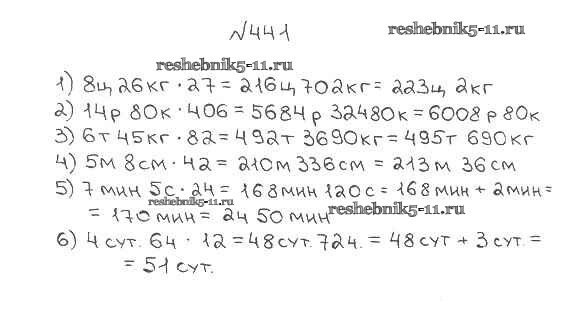 №441
reshebnik5-11.ru
reshebnik5-11.ru
1) 8ц 26кг · 27 = 216ц 702кг = 223ц 2кг
2) 14р 80к · 406 = 5684р 32480к = 6008р 80к
3) 6т 45кг · 82 = 492т 3690кг = 495т 690кг
4) 5м 8см · 42 = 210м 336см = 213м 36см
5) 7мин 5с · 24 = 168мин 120с = 168мин + 2мин =
reshebnik5-11.ru
= 170мин = 2ч 50мин
reshebnik5-11.ru
6) 4сут. 6ч · 12 = 48сут. 72ч. = 48сут + 3сут. =
= 51сут.